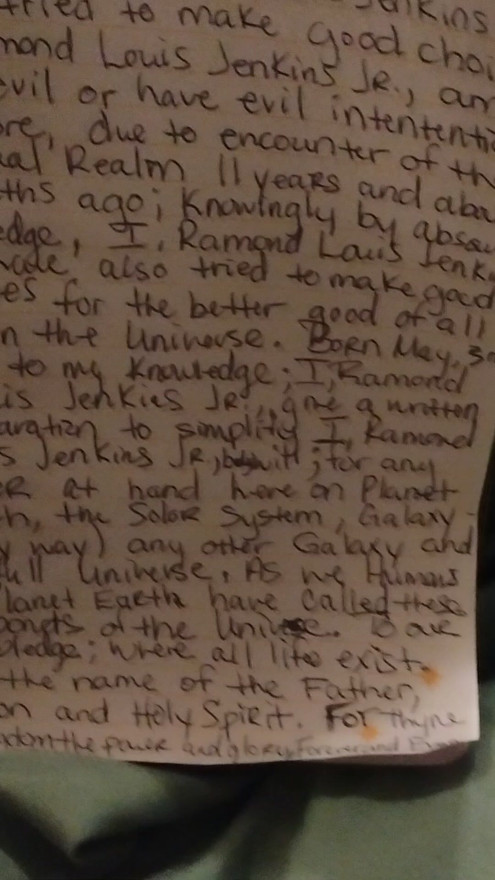 tried to make Jenkins
mond Louis Jenkins Jr., an
evil or have evil intententi
ore, due to encounter of th
ual Realm 11 years and abo
ths ago; Knowingly by absou
edge, I, Ramond Louis Jenk
also tried to make good
es for the better good of all
n the Universe. Born May, 3
to my Knowledge; I, Ramond
is Jenkins Jr., give a written
aration to simplify I, Ramond
s Jenkins Jr, ; for any
ER at hand here on Planet
h, the Solar System, Galaxy
y way) any other Galaxy and
full Universe. As we Humans
lanet Earth have called these
ponets of the Universe. To our
ledge; where all life exist.
the name of the Father,
on and Holy Spirit. For thyne
gdom the power and glory Forever and Ever